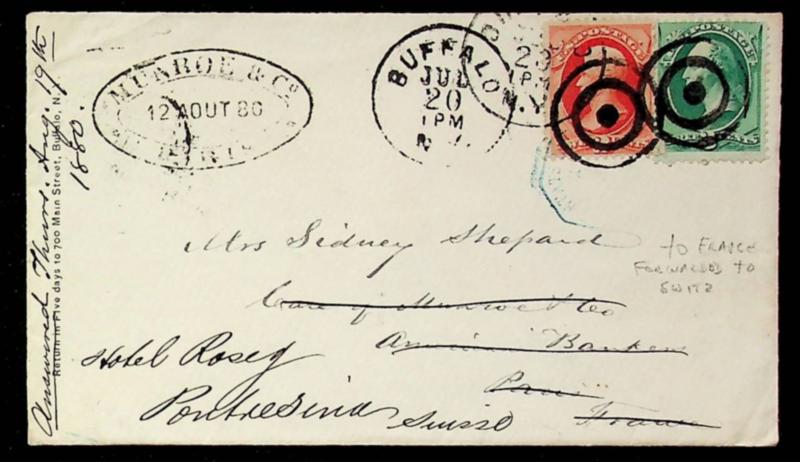 Answered Thurs. Aug. 19th
1880.
Return in Five days to 700 Main Street, Buffalo, N.Y.
MUNROE & Co.
12 AOUT 80
PARIS
BUFFALO N.Y.
JUL
20
1PM
N.Y.
BUFFALO, N.Y.
20
1P
POSTAGE
POSTAGE
Mrs Sidney Shepard
Care of Munroe & Co
American Bankers
Paris
France
Hotel Roseg
Pontresina
Suisse
TO FRANCE
FORWARDED TO
SWITZ